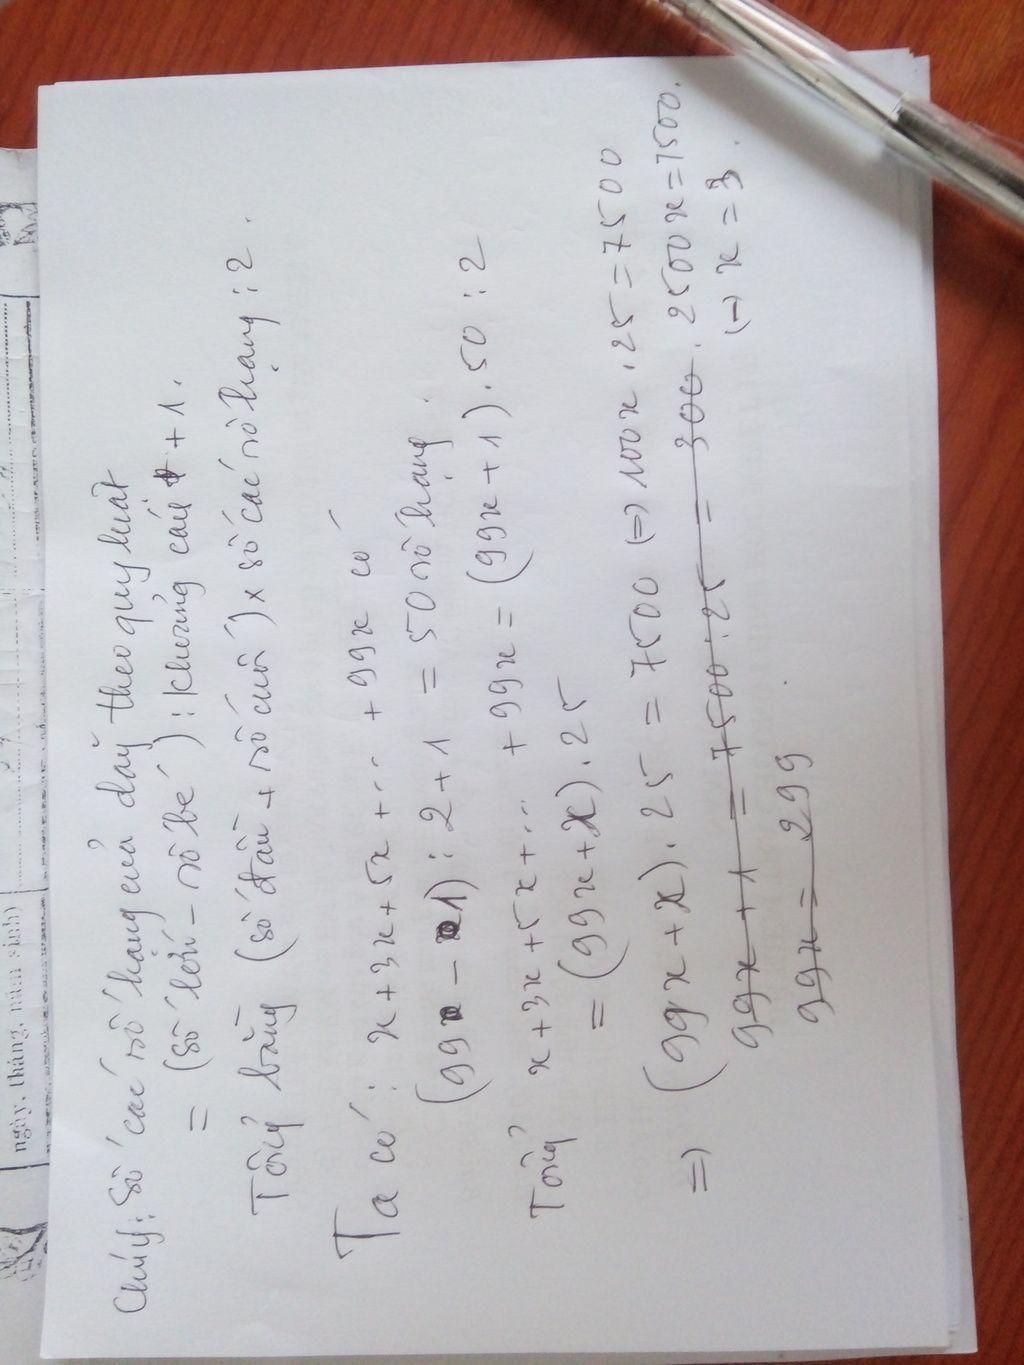 ngày, tháng, năm sinh)
Chú ý: Số các số hạng của dãy theo quy luật
= (số lớn - số bé) : khoảng cách + 1.
Tổng bằng (số đầu + số cuối) x số các số hạng : 2.
Ta có: x + 3x + 5x + ... + 99x có
(99 - 1) : 2 + 1 = 50 số hạng.
Tổng x + 3x + 5x + ... + 99x = (99x + 1) . 50 : 2
= (99x + x) . 25
=> (99x + x) . 25 = 7500 (=) 100x . 25 = 7500
99x + 1 = 7500 : 25 = 300 . 2500x = 7500.
99x = 299 . (=) x = 3 .